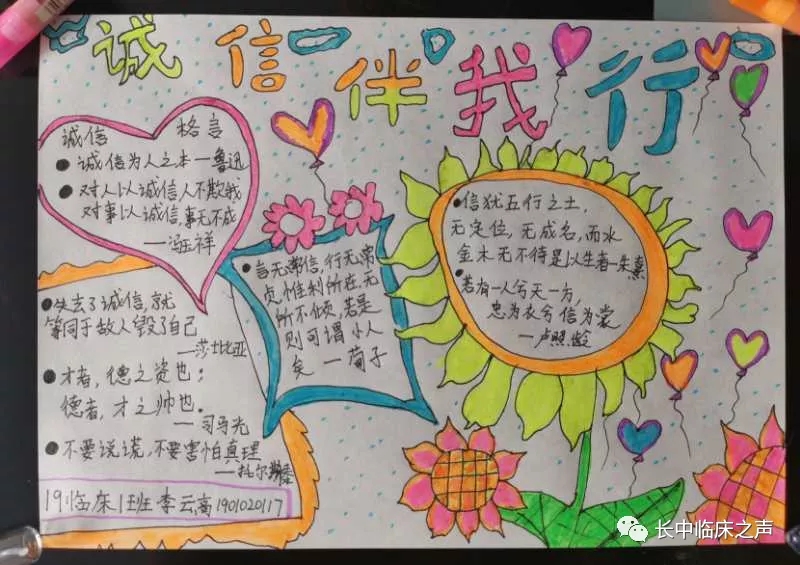 诚信伴我行
诚信 格言
●诚信为人之本一鲁迅
●对人以诚信人不欺我
对事以诚信,事无不成
—冯玉祥
●失去了诚信,就
等同于敌人毁了自己
—莎士比亚
●才者,德之资也;
德者,才之帅也.
—司马光
●不要说谎,不要害怕真理
—托尔斯泰
19临床1班 李云高 1901020117
●言无常信,行无常
贞,惟利所在,无
所不倾,若是
则可谓小人
矣 —荀子
●信犹五行之土,
无定位,无成名,而水
金木无不待是以生者—朱熹
●若有一人兮天一方,
忠为衣兮信为裳
—卢照龄
长中临床之声